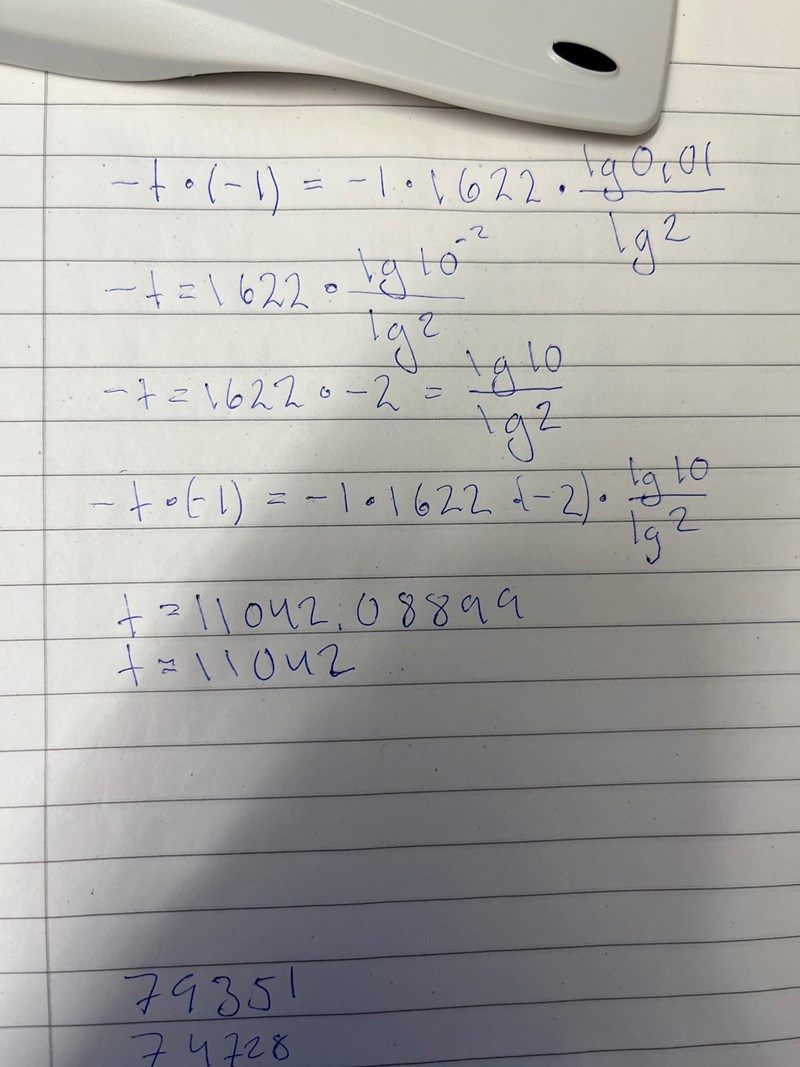 -t · (-1) = -1 · 1622 · lg 0,01 / lg 2
-t = 1622 · lg 10⁻² / lg 2
-t = 1622 · -2 = lg 10 / lg 2
-t · (-1) = -1 · 1622 · (-2) · lg 10 / lg 2
t = 11042,08899
t ≈ 11042
79351
74728